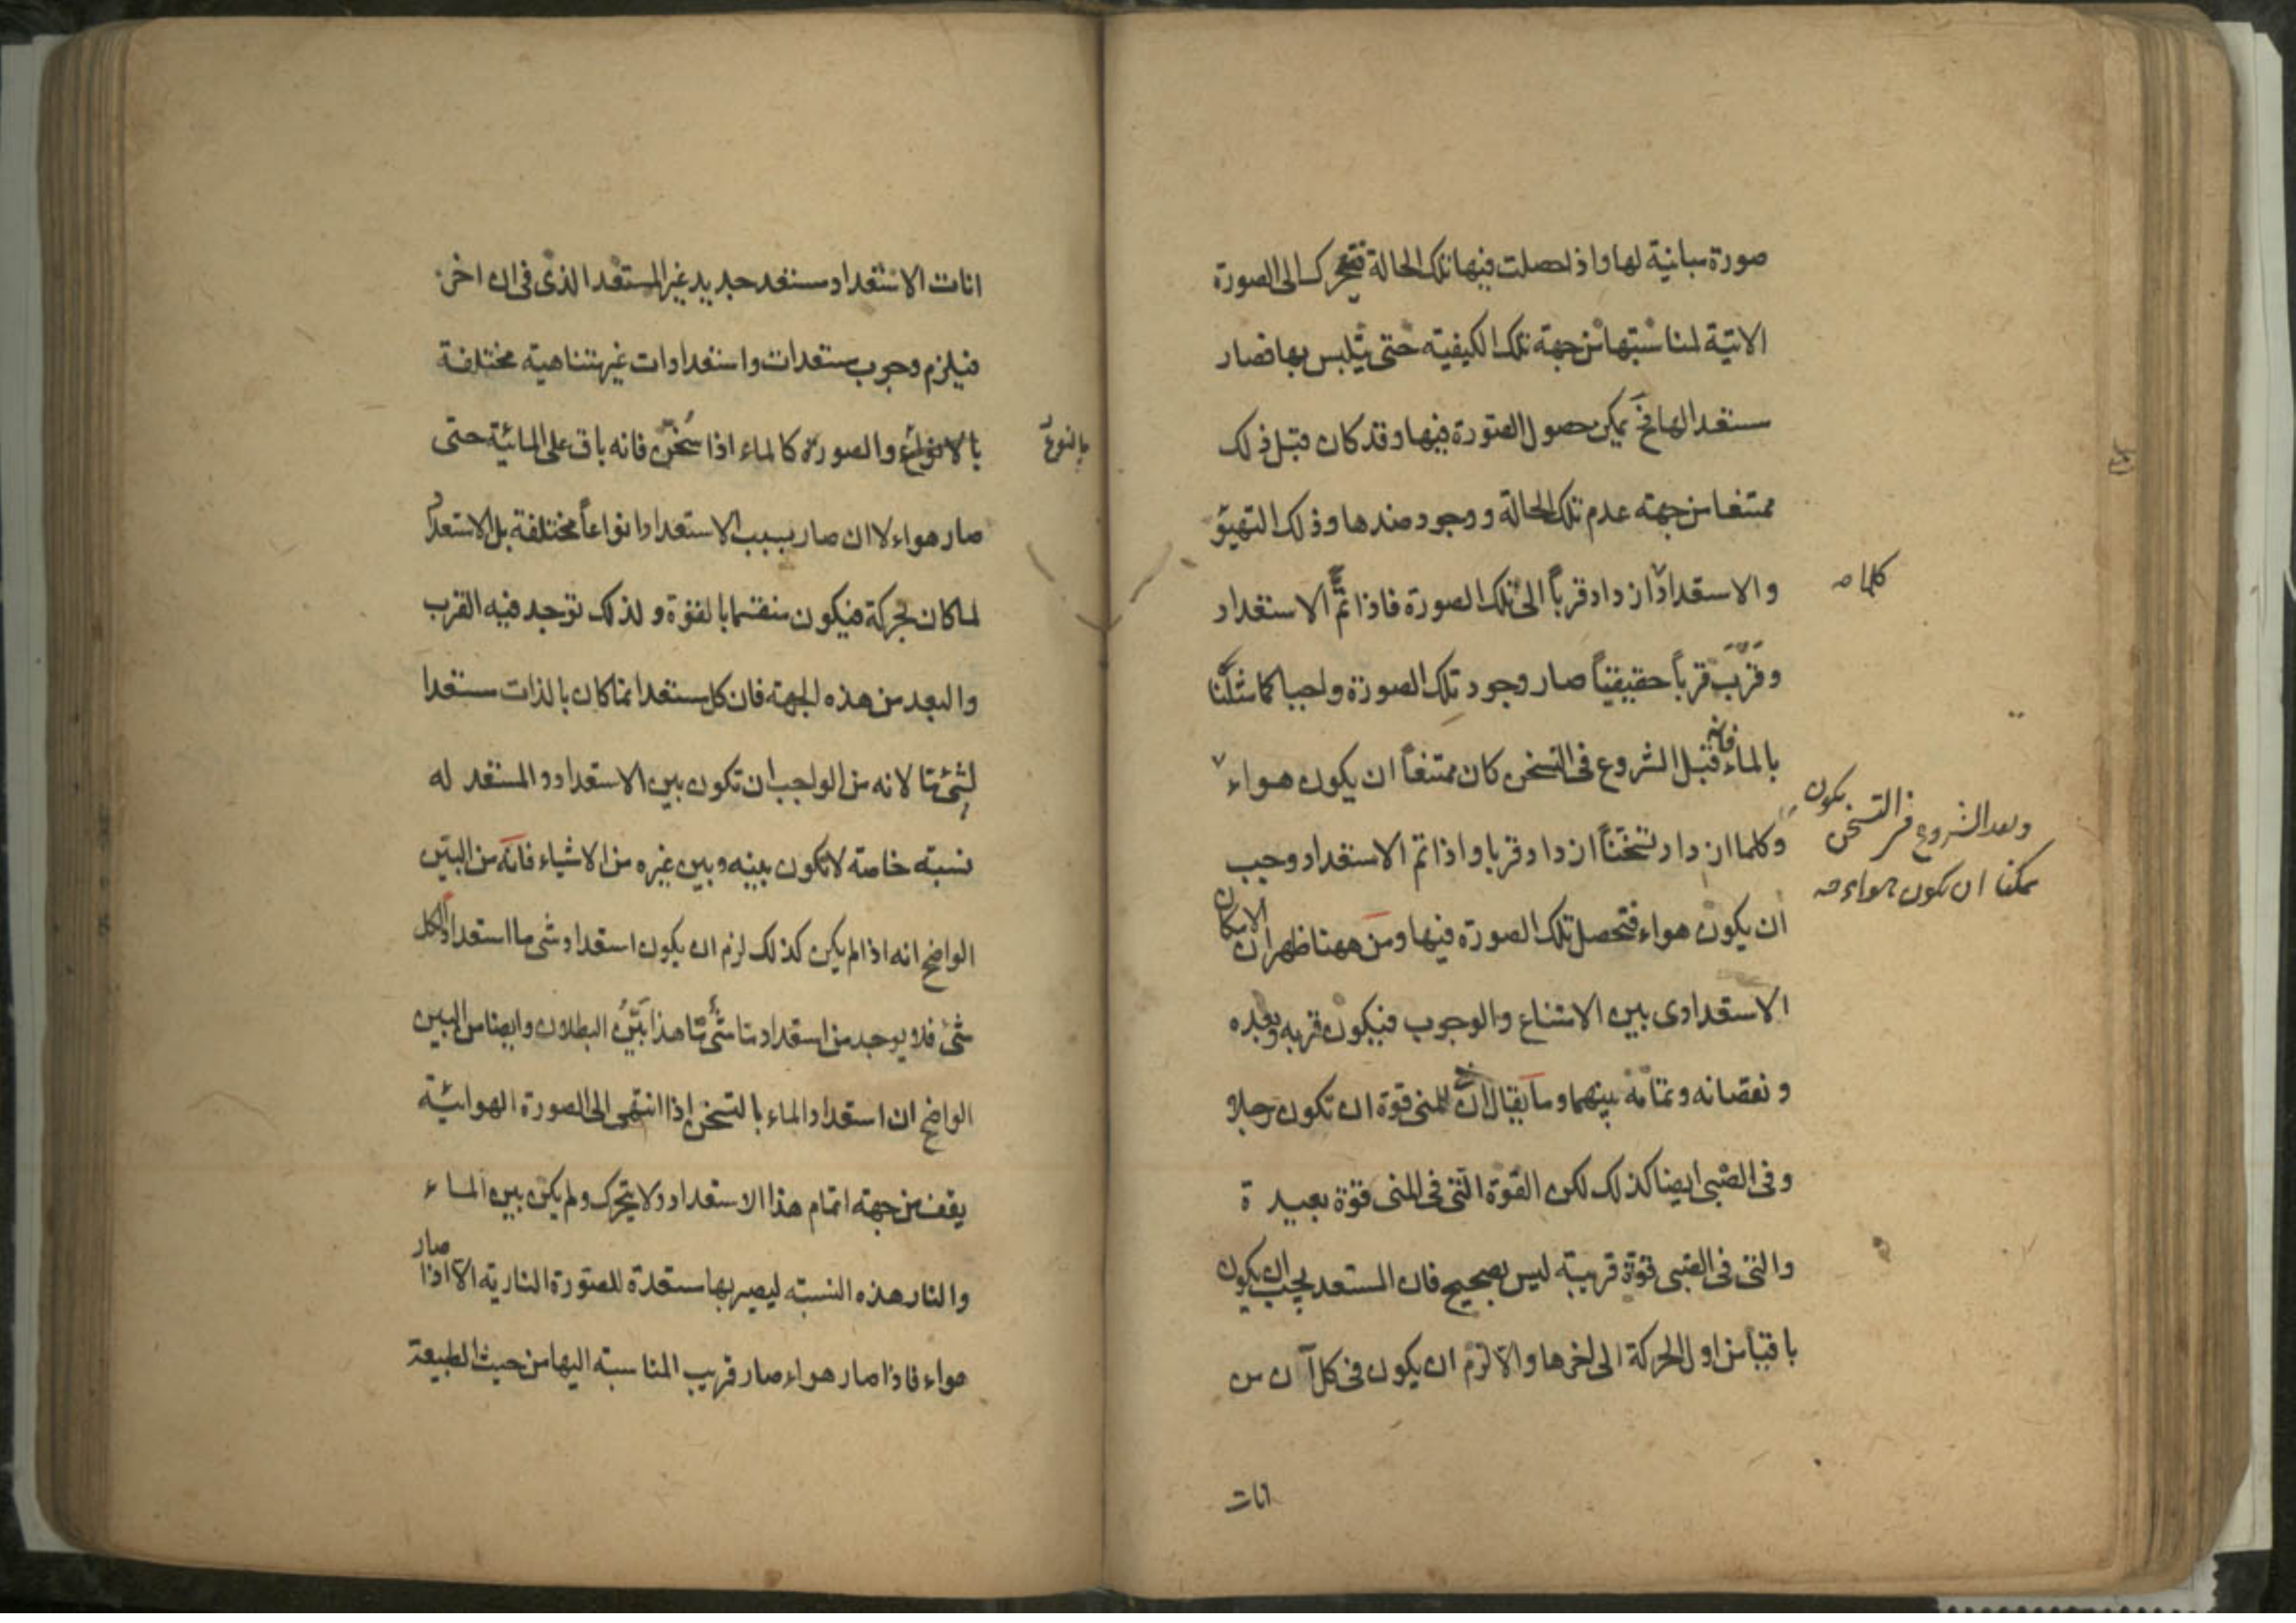 صورة مباينة لها واذا حصلت فيها تلك الحالة فتحرك الى الصورة
الاتية لمناسبتها من جهة تلك الكيفيه حتى يتلبس بها فصار
مستعدا لها فح يمكن حصول الصورة فيها وقد كان قبل ذلك
ممتنعا من جهته عدم تلك الحالة ووجود ضدها وذلك التهيؤ
والاستعداد ازداد قرباً الى تلك الصورة فاذا تمَّ الاستعداد
كلما صه
وقَرُبَ قرباً حقيقيّاً صار وجود تلك الصورة واجبا كما مثلنا
بالماء فانه قبل الشروع فى التسخن كان ممتنعاً ان يكون هواء
وبعد الشروع فى التسخن يكون
ممكنا ان يكون هواء صه
وكلما ازداد تسخّناً ازداد قربا واذا تم الاستعداد وجب
ان يكون هواء فتحصل تلك الصورة فيها ومن ههنا ظهر ان الامكان
الاستعدادى بين الامتناع والوجوب فيكون قربه وبعده
ونقصانه وتمامه بينهما وما يقال انّ للمنى قوة ان تكون رجلا
وفى الصّبى ايضا كذلك لكن القوّة الّتى فى المنى قوّة بعيدة
والتى فى الصّبى قوّة قريبته ليس بصحيح فان المستعد يجب ان يكون
باقياً من اول الحركة الى اخرها والا لزم ان يكون فى كل آن من
انات
انات الاستعداد مستعد جديد غير المستعد الذى فى ان اخر
فيلزم وجوب مستعدات واستعدادات غير متناهيته مختلفة
بالانواع والصورة كالماء اذا سُخّن فانه باق على المائيّة حتى
بالنوع
صار هواء لا ان صار بسبب الاستعداد انواعاً مختلفة بل الاستعداد
لما كان بحركة فيكون منقسما بالقوّة ولذلك توجد فيه القرب
والبعد من هذه الجهته فان كل مستعد انما كان بالذات مستعدا
لشئ ما لانه من الواجب ان تكون بين الاستعداد و المستعد له
نسبته خاصته لا تكون بينه وبين غيره من الاشياء فانّه من البيّن
الواضح انه اذا لم يكن كذلك لزم ان يكون استعداد شى ما استعداداً لكل
شئ فلا يوجد من استعداد ما شئ ما هذا بَيّنُ البطلان وايضا من البين
الواضح ان استعداد الماء بالتسخن اذا انتهى الى الصورة الهوائيّة
يقف من جهته اتمام هذا الاستعداد ولا يتحرك ولم يكن بين الماء
والنار هذه النسبته ليصير بها مستعدّة للصّورة الناريّه الا اذا صار
هواء فاذا صار هواء صار قريب المناسبته اليها من حيث الطبيعة